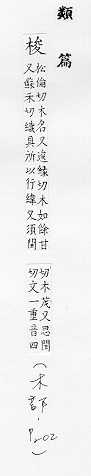 類篇
梭
松倫切木名又逡緣切木如餘甘
又蘇禾切織具所以行緯又須閏
切木茂又思閏
切文一重音四
(木部·P202)